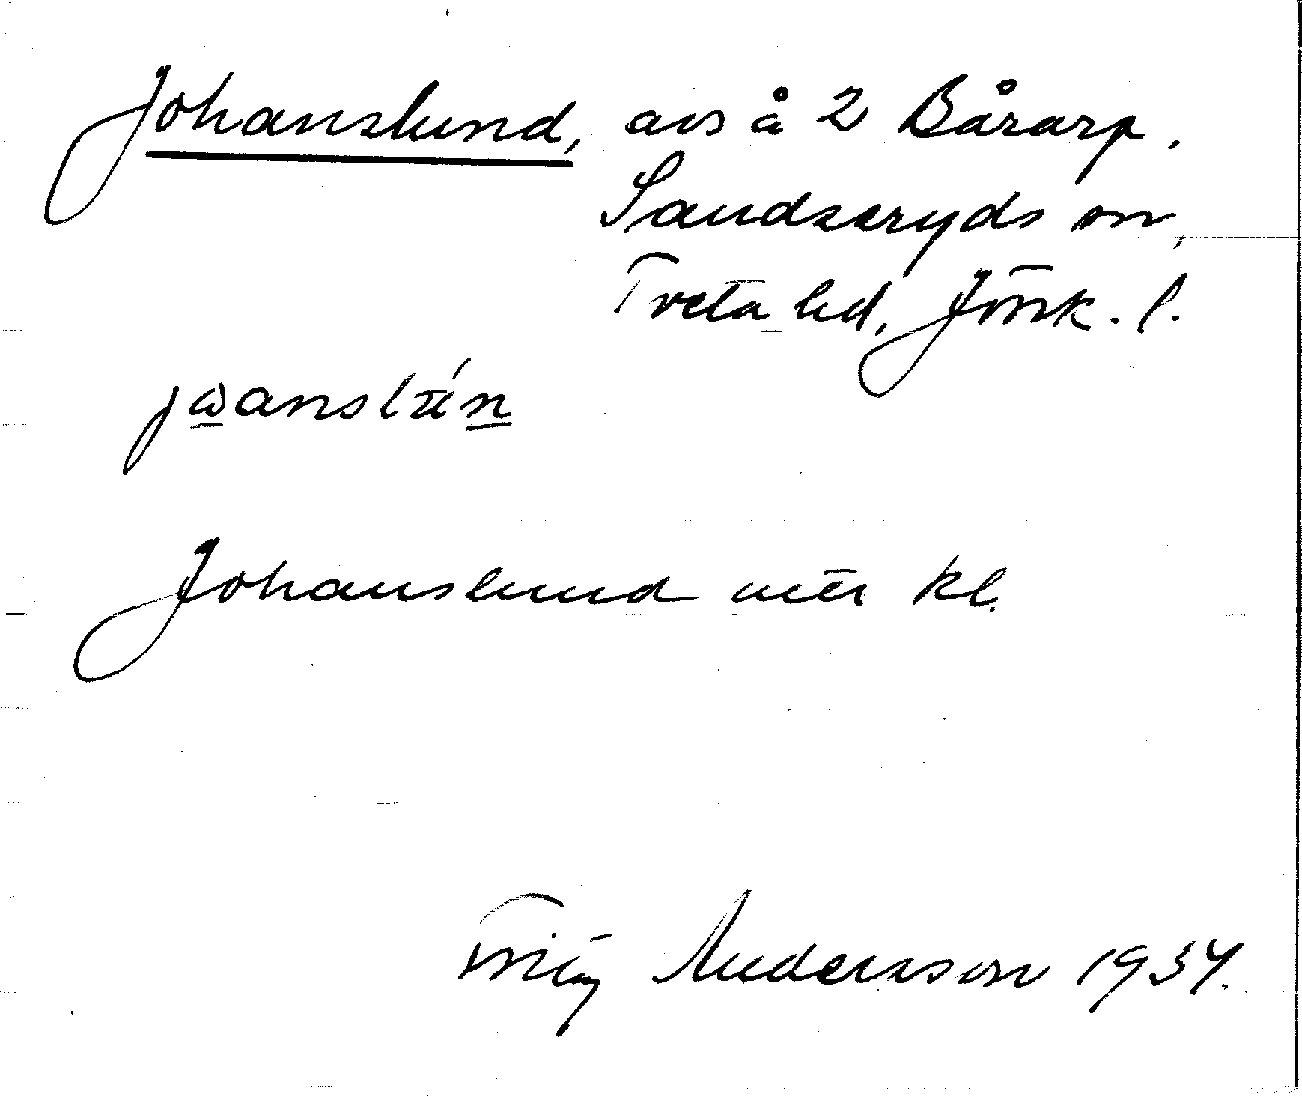 Johanslund, avs å 2 Bårarp.
Sandseryds sn,
Tveta hd, Jönk. l.
Johanslund utt kl.
Fritz Andersson 1934.